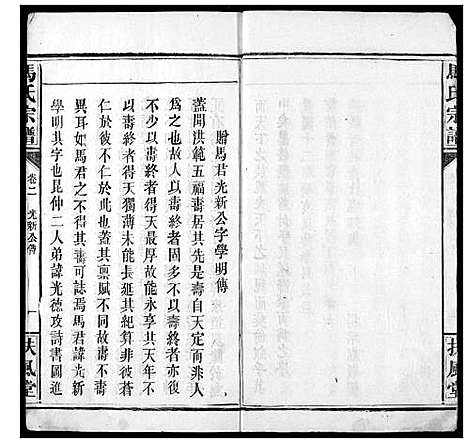 馬氏宗譜
扶風堂
贈馬君光新公字學明傳
蓋聞洪範五福壽居其先是壽自天定而非人
為之也故人以壽終者固多不以壽終者亦復
不少以壽終者得天最深故能永享其天年不
以壽終者得天獨薄未能長延其紀算非彼蒼
仁於彼不仁於此也蓋其稟賦不同故壽不壽
異耳如馬君之不得其壽可誌焉馬君諱光新
學明其字也昆仲二人弟諱光德攻詩書圖進
馬氏宗譜
卷二
光新公傳
一
扶風堂